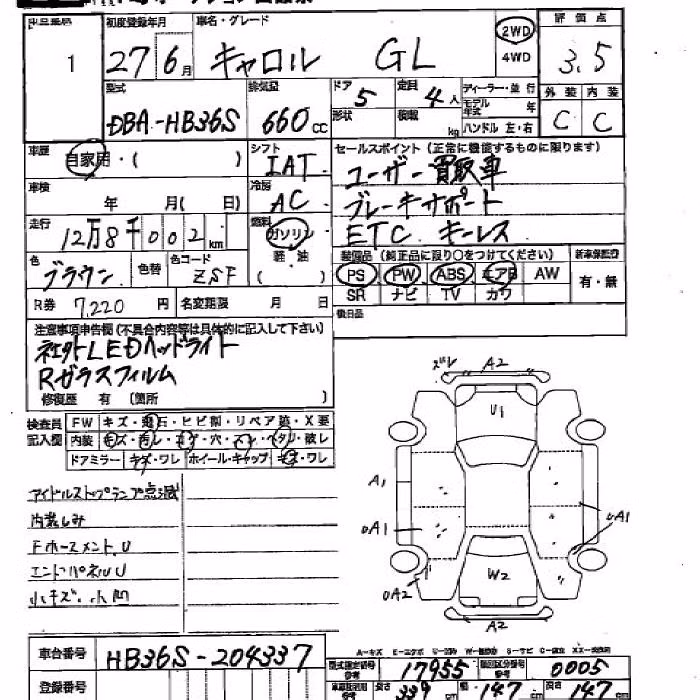 初度登録年月 車名・グレード 2WD 評価点
1 27 6月 キャロル GL 4WD 3.5
型式 排気量 ドア 定員 ディーラー・並行 外装 内装
DBA-HB36S 660cc 5 4人 モデル年式 年 C C
形状 積載 kg ハンドル 左・右
車歴 自家用・( ) シフト IAT セールスポイント (正常に機能するものに限ります)
ユーザー買取車
車検 年 月( 日) 冷房 AC ブレーキサポート
走行 12万8千002km 燃料 ガソリン 軽油 ETC キーレス
装備品 (純正品に限り○をつけてください) 新車保証書
色 ブラウン 色替 色コード ZSF PS PW ABS エアB AW 有・無
SR ナビ TV カワ
R券 7,220円 名変期限 月 日 後日品
注意事項申告欄(不具合内容等は具体的に記入して下さい)
社外LEDヘッドライト
Rガラスフィルム
修復歴 有 〔箇所 〕
検査員記入欄 FW キズ・飛石・ヒビ割・リペア跡・X要
内装 キズ・汚レ・コゲ・穴・スレ・ヘタリ・破レ
ドアミラー キズ・ワレ ホイール・キャップ キズ・ワレ
アイドルストップランプ点滅
内装しみ
Fホースメント、U
エンドパネルU
小キズ・小凹
ズレ A2
U1
A1
UA1 UA1
UA2 W2
A2
A-キズ E-エクボ U-凹 W-補修跡 S-サビ C-腐食 XX-交換済
車台番号 HB36S-204337 型式指定番号 参考 17955 類別区分番号 参考 0005
登録番号 長さ 339cm 幅 147cm 高さ 147cm